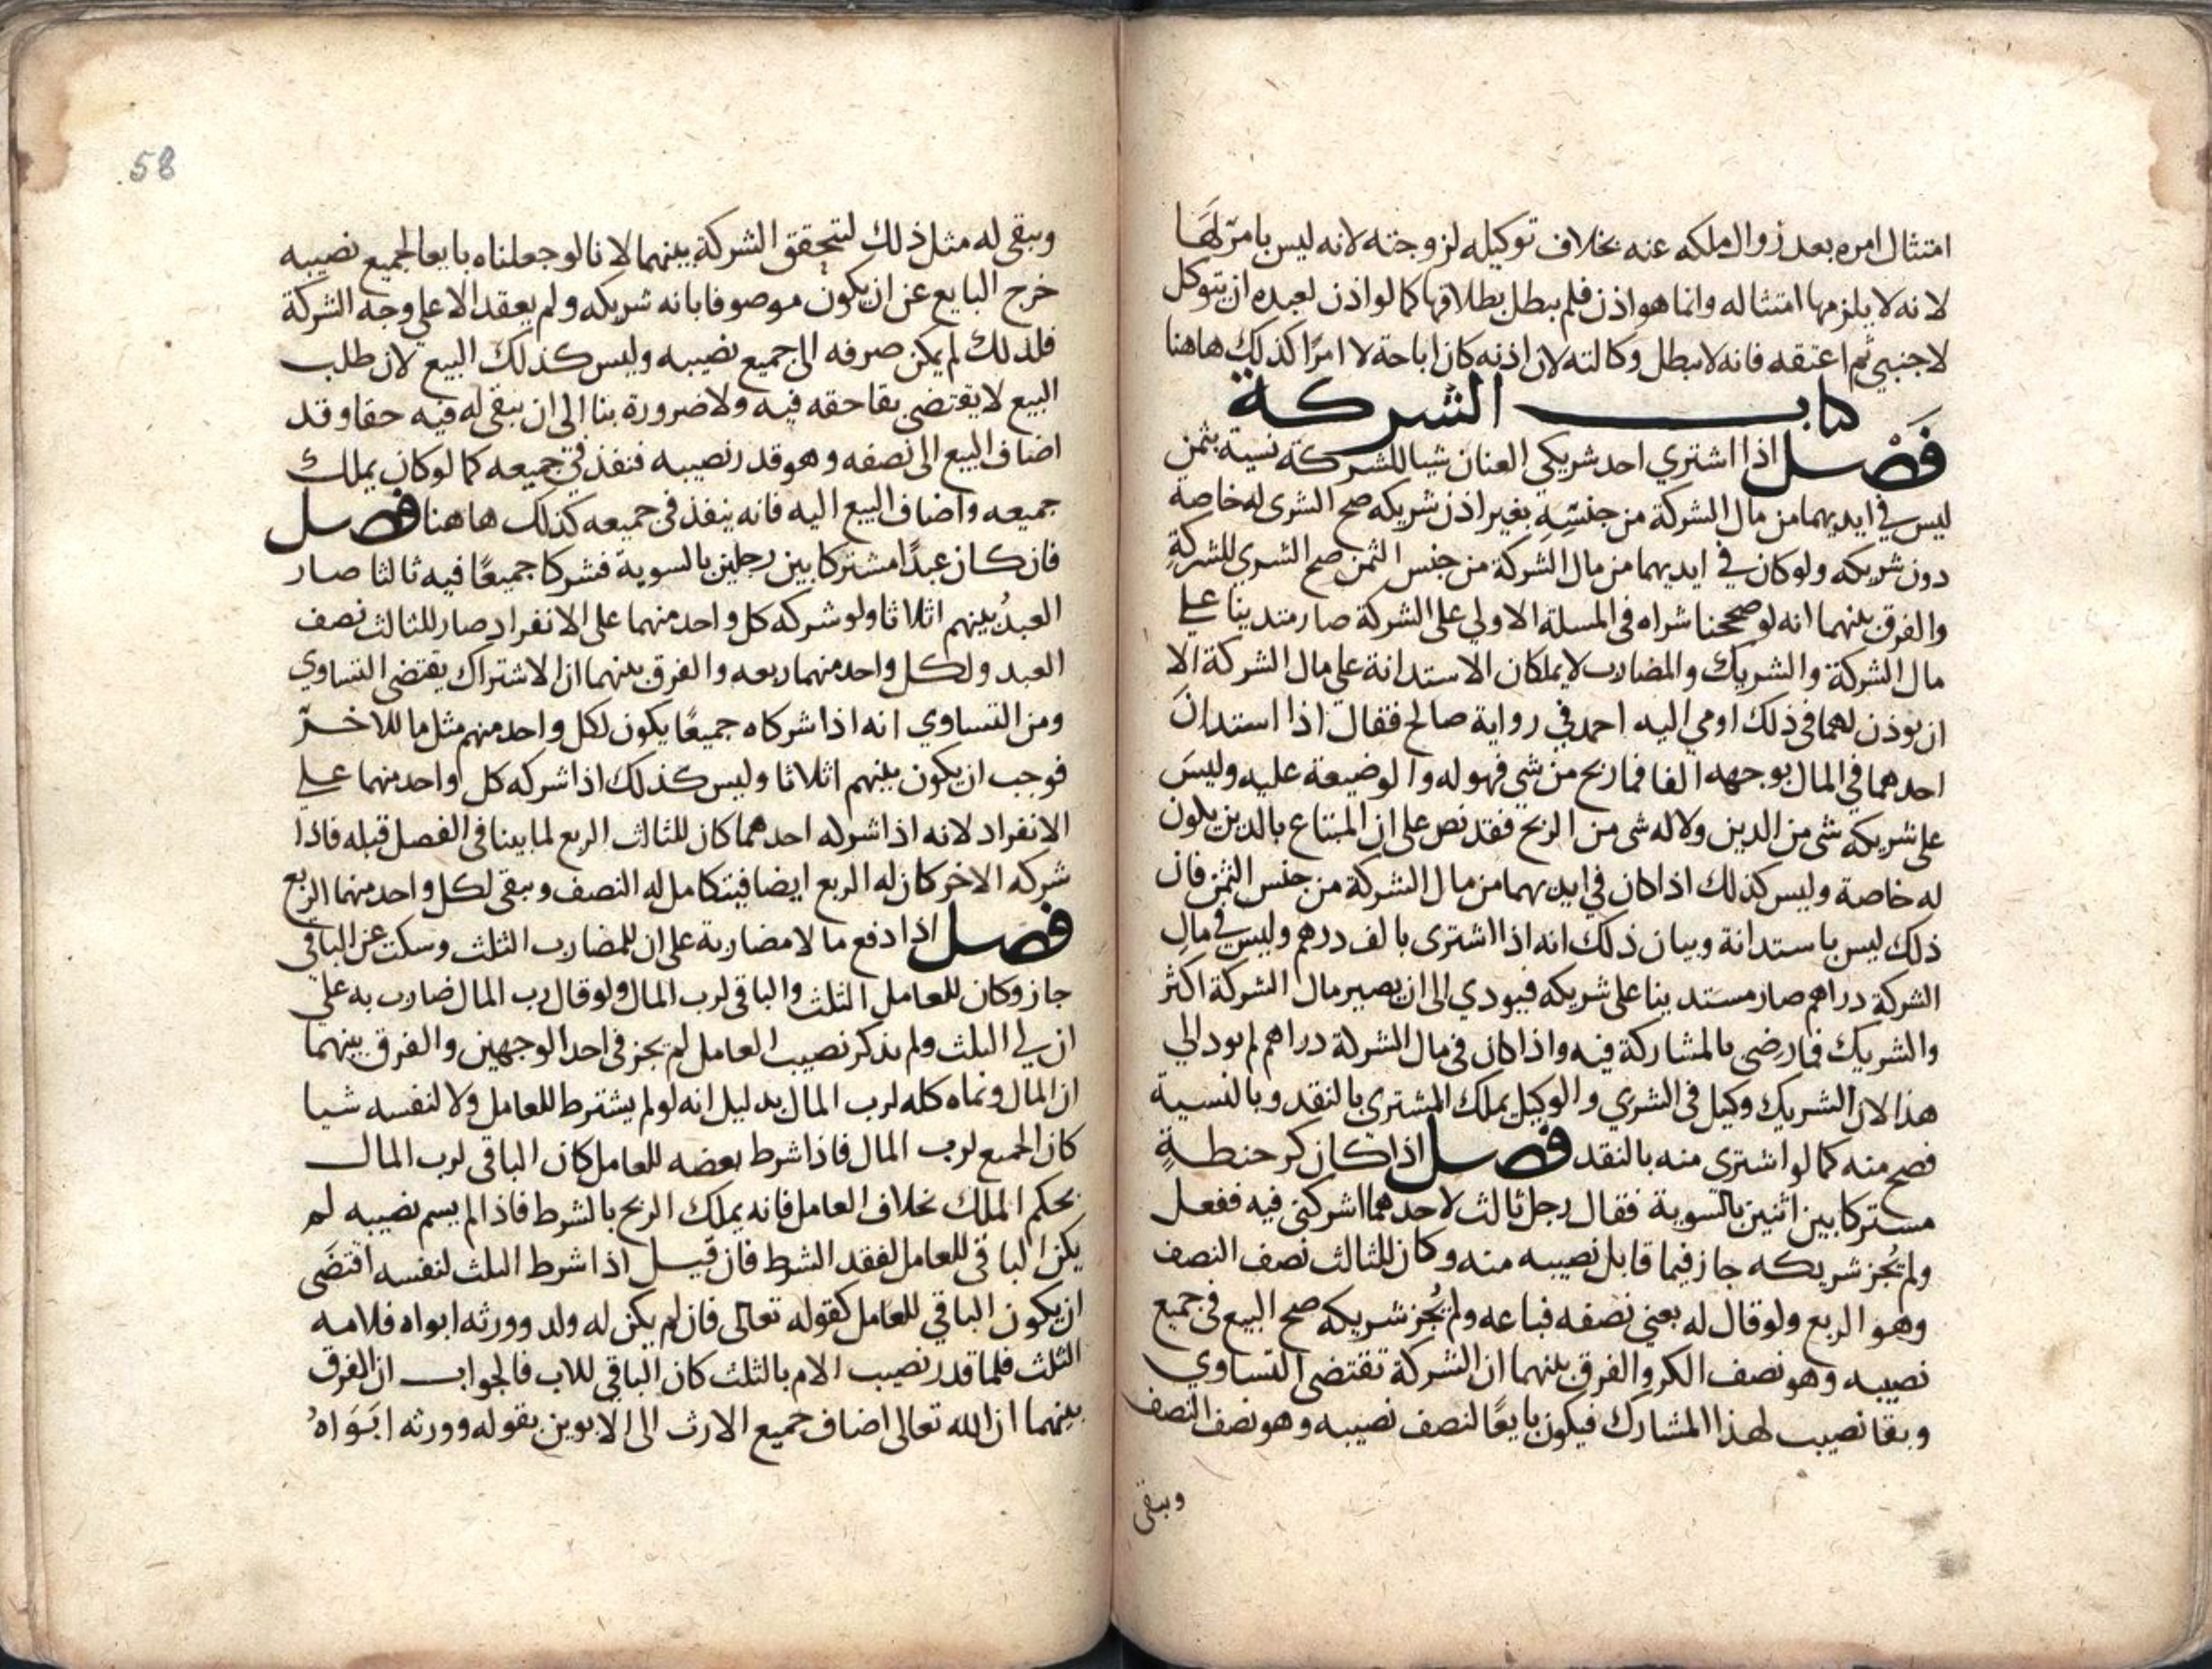 امتثال امره بعد زوال ملكه عنه بخلاف توكيله لزوجته لانه ليس بامرٍ لها
لانه لا يلزمها امتثاله وانما هو اذن فلم يبطل بطلاقها كما لو اذن لعبده ان يتوكل
لاجنبي ثم اعتقه فانه لا يبطل وكالته لان اذنه كان اباحة لا امرًا كذلك هاهنا
كتاب الشركة
فَصْل اذا اشتري احد شريكى العنان شيا للشركة نسية بثمن
ليس في ايديهما من مال الشركة من جنسِهِ بغير اذن شريكه صح الشرى له خاصة
دون شريكه ولو كان في ايديهما من مال الشركة من جنس الثمن صح الشري للشركةِ
والفرق بينهما انه لو صححنا شراه فى المسلة الاولي على الشركة صار متدينا علي
مال الشركة والشريك والمضارب لا يملكان الاستدانة على مال الشركة الا
ان يوذن لهما فى ذلك اومي اليه احمد في رواية صالح فقال اذا استدانَ
احدهما في المال بوجهه الفا فما ربح من شي فهو له والوضيعة عليه وليسَ
على شريكه شى من الدين ولا له شى من الربح فقد نص على ان المبتاع بالدين يكون
له خاصة وليس كذلك اذا كان في ايديهما من مال الشركة من جنس الثمن فان
ذلك ليس باستدانة وبيان ذلك انه اذا اشترى بالف درهم وليس في مالِ
الشركة دراهم صار مستدينا على شريكه فيودي الى ان يصير مال الشركة اكثر
والشريك فما رضى بالمشاركة فيه واذا كان فى مال الشركة دراهم لم يود الي
هذا لان الشريك وكيل فى الشري والوكيل يملك المشترى بالنقد وبالنسية
فصح منه كما لو اشترى منه بالنقد فصل اذا كان كر حنطةٍ
مستركا بين اثنين بالسوية فقال رجل ثالث لاحدهما اشركنى فيه ففعل
ولم يُجز شريكه جاز فيما قابل نصيبه منه وكان للثالث نصف النصف
وهو الربع ولو قال له بعني نصفه فباعه ولم يُجز شريكه صح البيع فى جميع
نصيبه وهو نصف الكر والفرق بينهما ان الشركة تقتضى التساوي
وبقا نصيب لهذا المشارك فيكون بايعًا لنصف نصيبه وهو نصف النصف
ويبقى
58
ويبقى له مثل ذلك لتتحقق الشركة بينهما لانا لو جعلناه بايعا لجميع نصيبه
خرج البايع عن ان يكون موصوفا بانه شريكه ولم يعقد الا علي وجه الشركة
فلذلك لم يمكن صرفه الى جميع نصيبه وليس كذلك البيع لان طلب
البيع لا يقتضى بقا حقه فيه ولا ضرورة بنا الى ان يبقى له فيه حقا وقد
اضاف البيع الى نصفه وهو قدر نصيبه فنفذ في جميعه كما لو كان يملك
جميعه واضاف البيع اليه فانه ينفذ فى جميعه كذلك هاهنا فصل
فان كان عبدًا مشتركا بين رجلين بالسوية فشركا جميعًا فيه ثالثا صار
العبدُ بينهم اثلاثا ولو شركه كل واحد منهما على الانفراد صار للثالث نصف
العبد ولكل واحد منهما ربعه والفرق بينهما ان الاشتراك يقتضى التساوي
ومن التساوي انه اذا شركاه جميعًا يكون لكل واحد منهم مثل ما للاخرّ
فوجب ان يكون بينهم اثلاثا وليس كذلك اذا شركه كل واحد منهما علي
الانفراد لانه اذا شركه احدهما كان للثالث الربع لما بينا فى الفصل قبله فاذا
شركه الاخر كان له الربع ايضا فيتكامل له النصف ويبقى لكل واحد منهما الربع
فصل اذا دفع مالا مضاربة على ان للمضارب الثلث وسكت عن الباقى
جاز وكان للعامل الثلث والباقى لرب المال ولو قال رب المال ضارب به على
ان لي الثلث ولم يذكر نصيب العامل لم يجز فى احد الوجهين والفرق بينهما
ان المال ونماه كله لرب المال بدليل انه لو لم يشترط للعامل ولا لنفسه شيا
كان الجميع لرب المال فاذا شرط بعضه للعامل كان الباقى لرب المال
بحكم الملك بخلاف العامل فانه يملك الربح بالشرط فاذا لم يسم نصيبه لم
يكن الباقى للعامل لفقد الشرط فان قيل اذا شرط الثلث لنفسه اقتضَى
ان يكون الباقي للعامل كقوله تعالى فان لم يكن له ولد وورثه ابواه فلامه
الثلث فلما قدر نصيب الام بالثلث كان الباقي للاب فالجواب ان الفرق
بينهما ان الله تعالى اضاف جميع الارث الى الابوين بقوله وورثه ابَوَاهُ